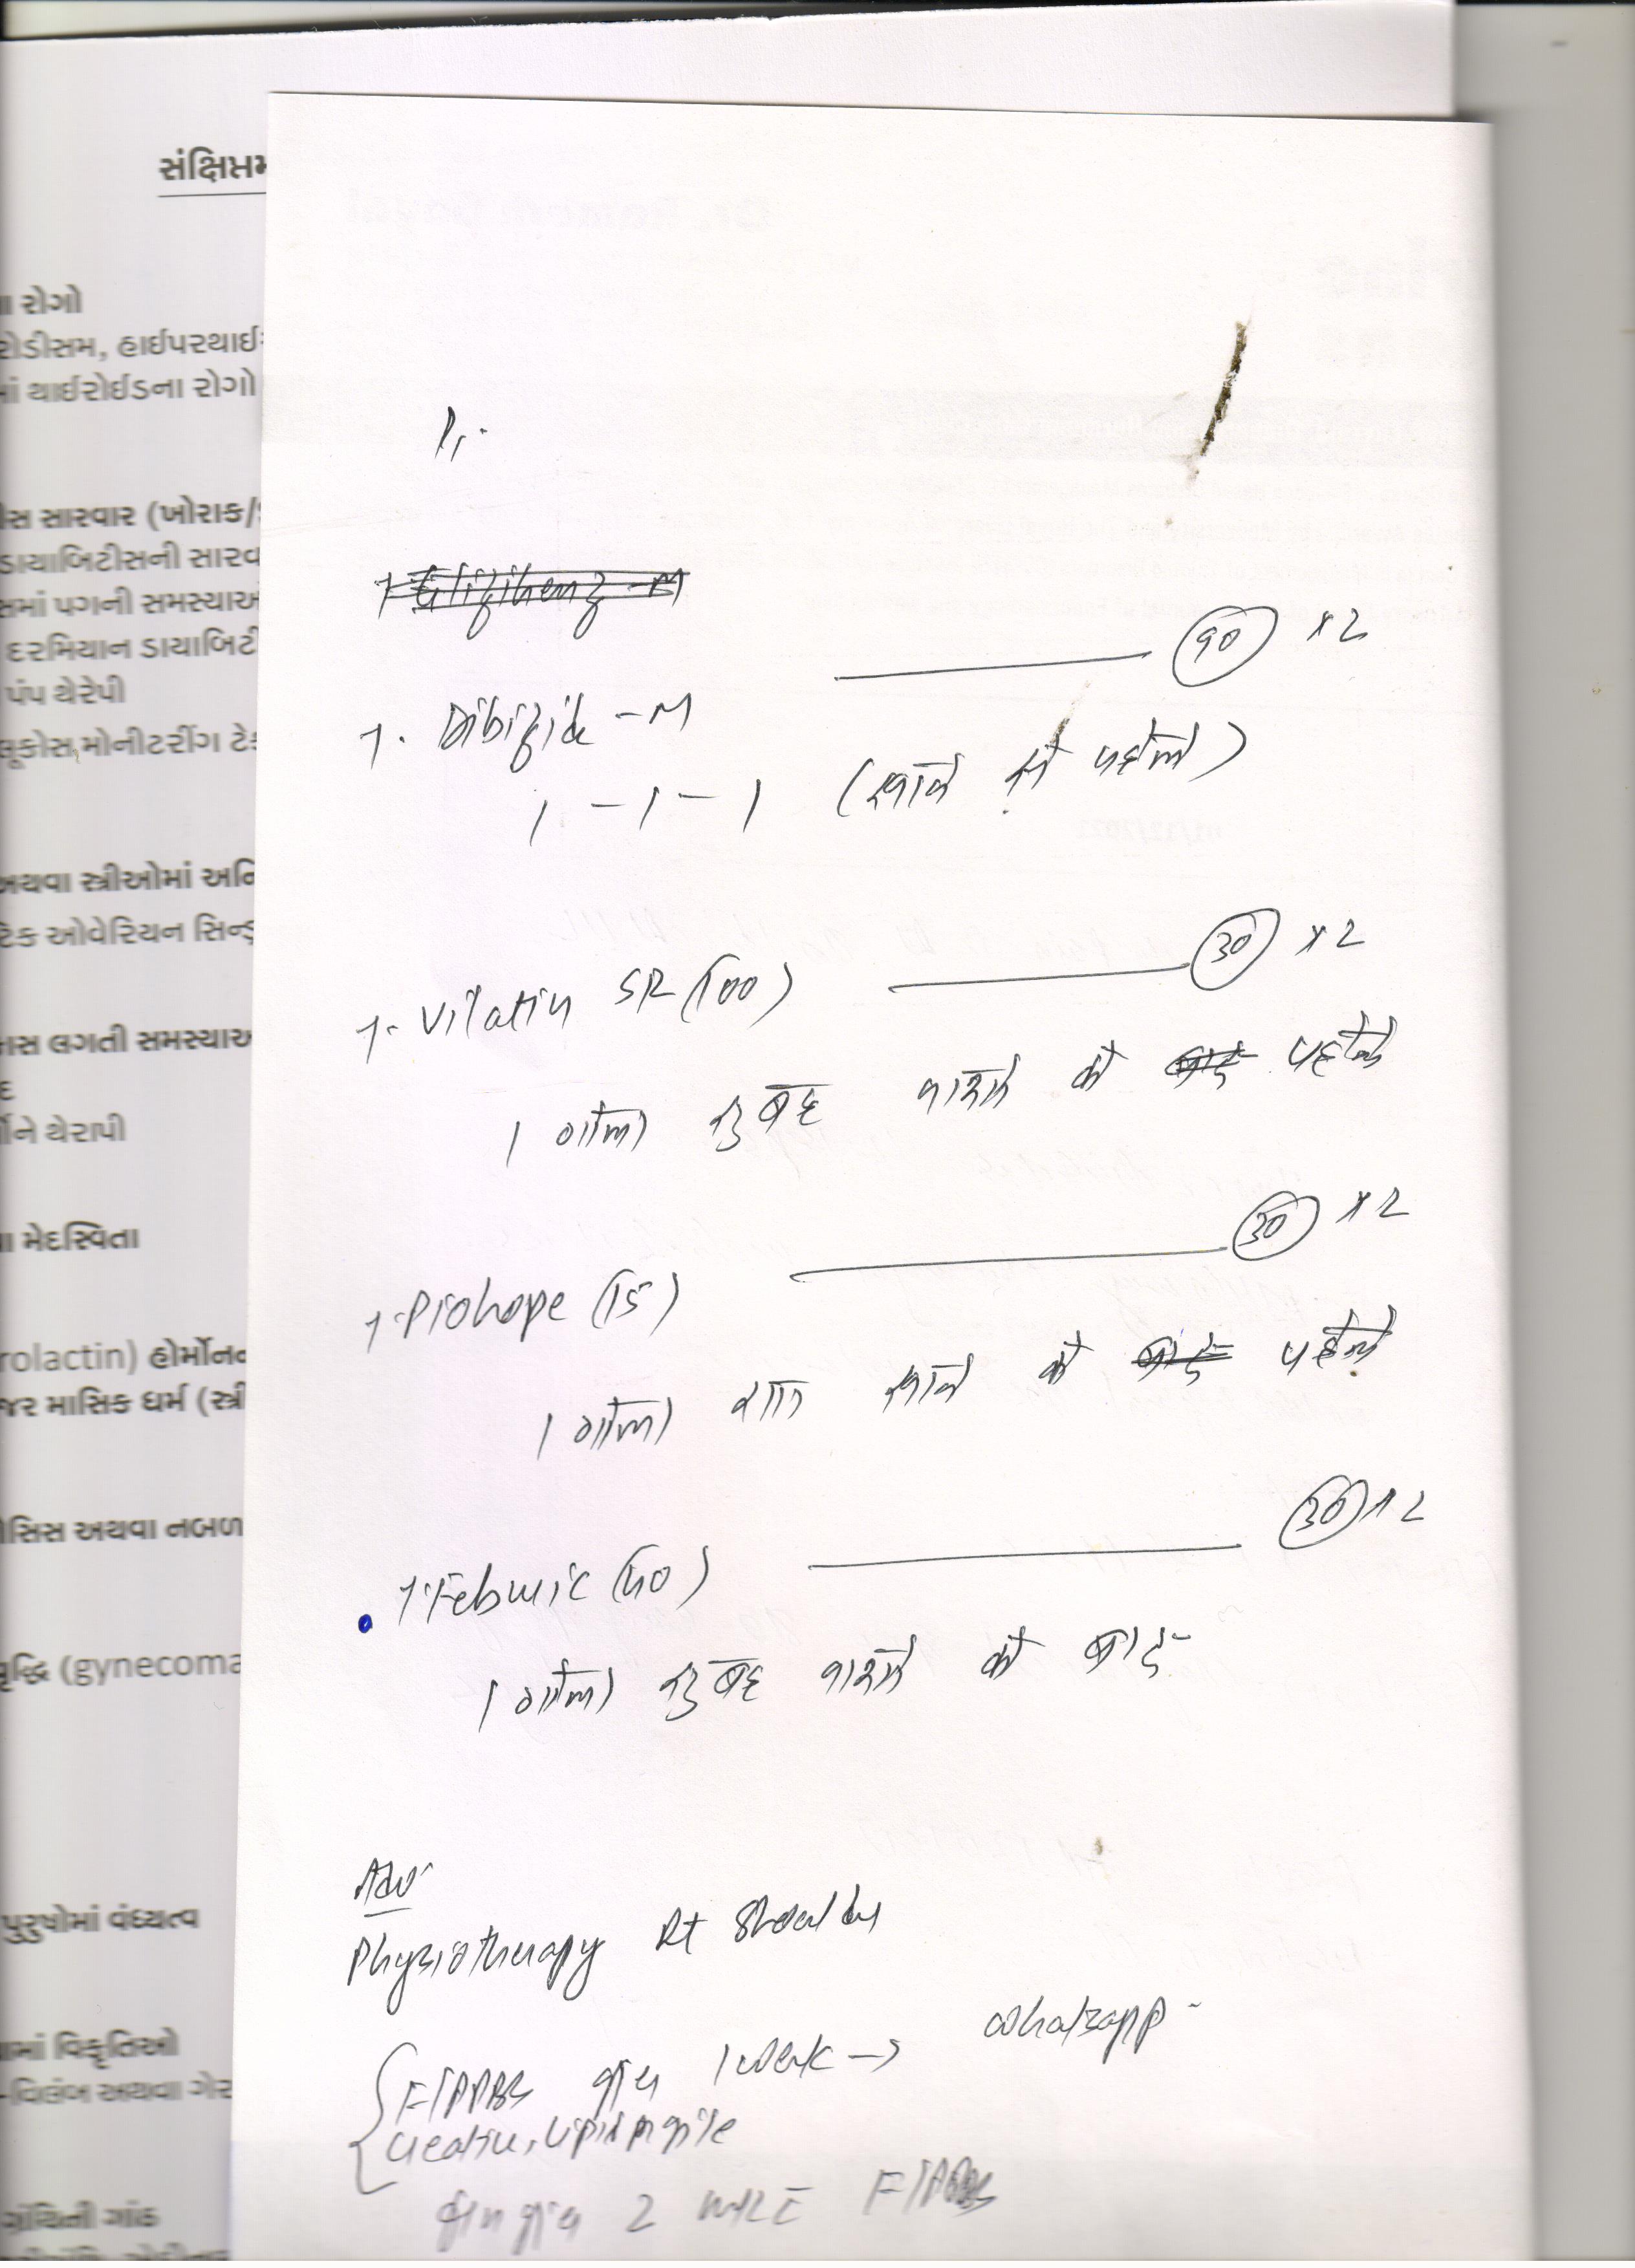 સંક્ષિપ્તમ
ા રોગો
રોડીસમ, હાઈપરથાઈ
માં થાઈરોઈડના રોગો
ીસ સારવાર (ખોરાક/
ડાયાબિટીસની સારવ
સમાં પગની સમસ્યાઓ
દરમિયાન ડાયાબિટી
પંપ થેરેપી
લૂકોસ મોનીટરીંગ ટે
અથવા સ્ત્રીઓમાં અનિ
ટિક ઓવેરિયન સિન્ડ્ર
લગતી સમસ્યાઓ
થેરાપી
ા મેદસ્વિતા
rolactin) હોર્મોનન
માસિક ધર્મ (સ્ત્રી
ોસિસ અથવા નબળ
વૃદ્ધિ (gynecoma
પુરુષોમાં વંધ્યત્વ
ામાં વિકૃતિઓ
-વિલંબ અથવા ગેર
ગ્રંથિની ગાંઠ
90 x2
1. Dibizide -M
1 - 1 - 1 (खाने के पहले)
30 x2
1. Vilatin SR (100)
1 गोली सुबह नाश्ते के बाद पहले
30 x2
1. Piohope (15)
1 गोली शाम खाने के बाद पहले
30 x2
1. Feburic (40)
1 गोली सुबह नाश्ते के बाद
Adv
Physiotherapy Rt Shoulder
F/PPBS 1 week → whatsapp
creatine, Lipid profile
2 F/PPBS